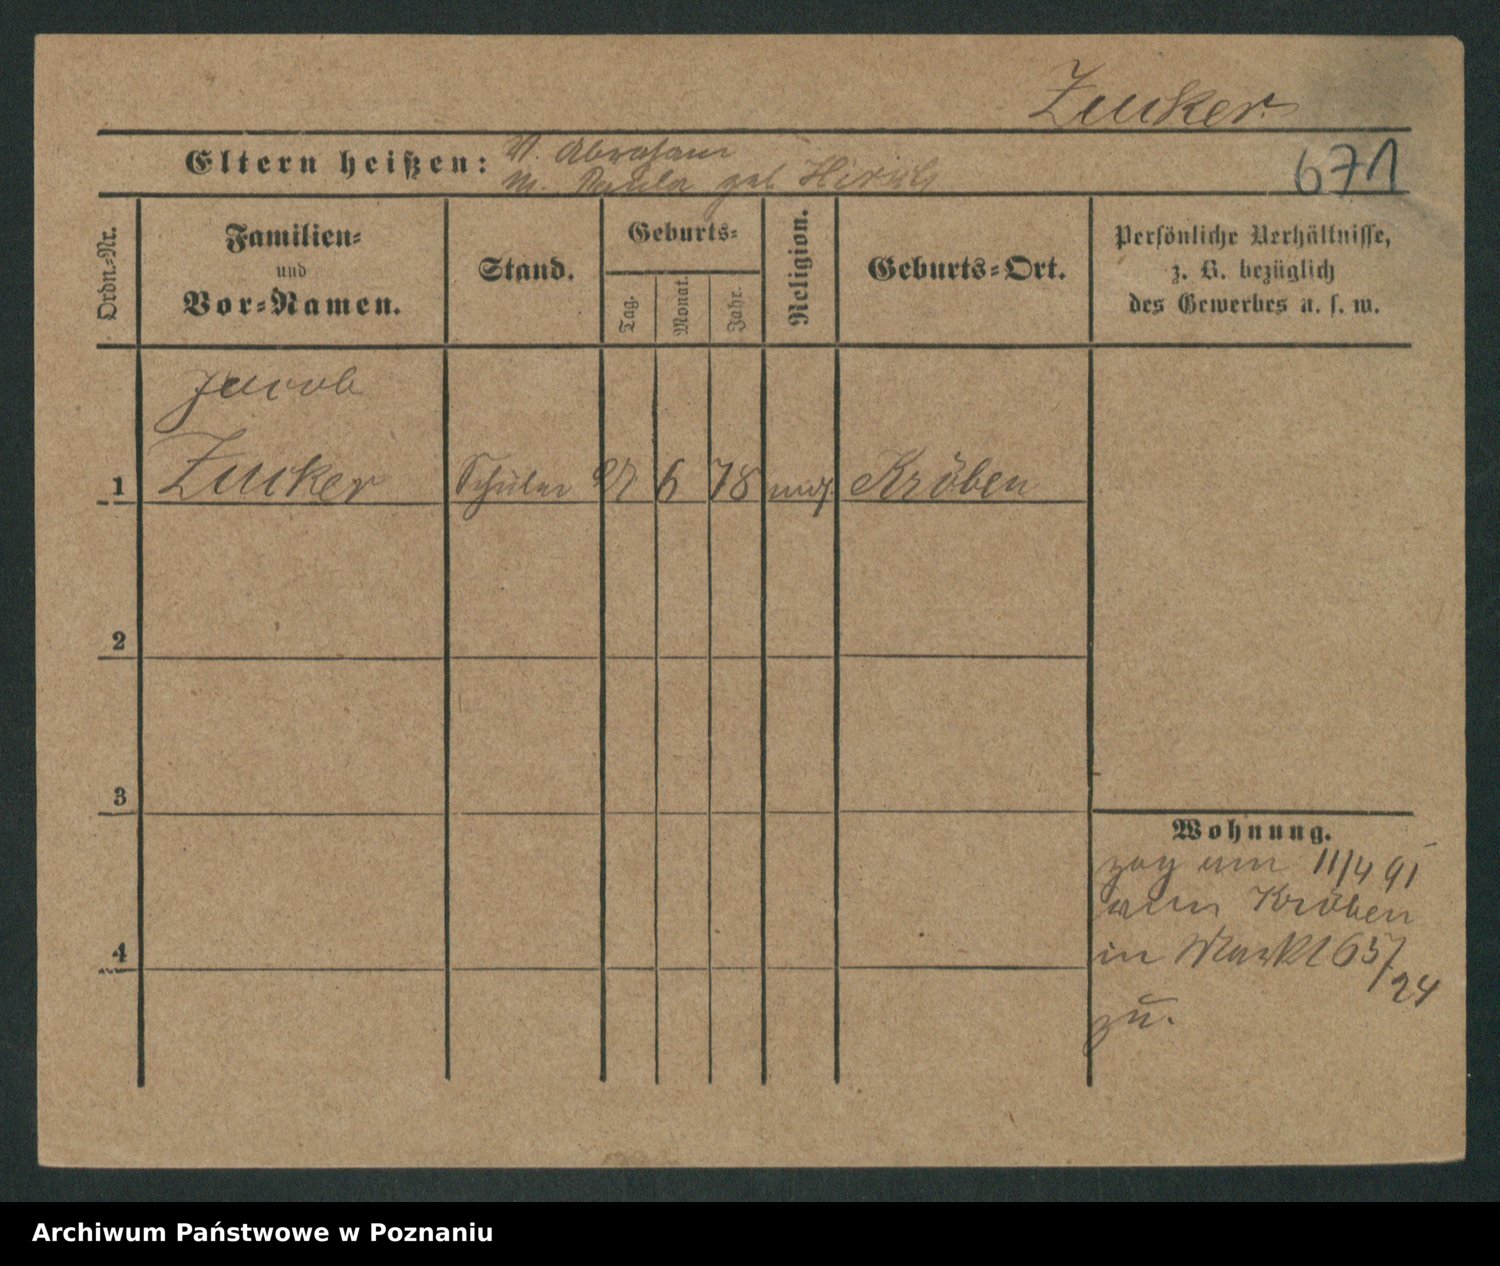 Zucker
Eltern heißen: V. Abraham
M. Paula geb Hirsch
671
Ordn.-Nr.
Familien-
und
Vor-Namen.
Stand.
Geburts-
Tag.
Monat.
Jahr.
Religion.
Geburts-Ort.
Persönliche Verhältnisse,
z. B. bezüglich
des Gewerbes u. s. w.
Jacob
1 Zucker Schüler 27 6 78 mos. Kröben
2
3
4
Wohnung.
zog am 11/4 91
von Kröben
in Markt 657
/24
zu.
Archiwum Państwowe w Poznaniu